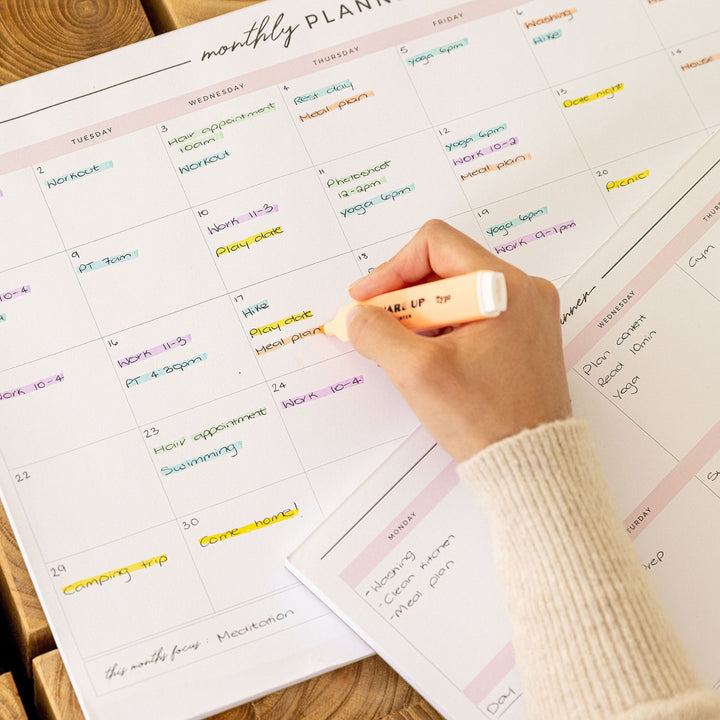 monthly PLANN
TUESDAY
WEDNESDAY
THURSDAY
FRIDAY
2
Workout
3
Hair appointment
10am
Workout
4
Rest day
Meal plan
5
Yoga 6pm
6
Washing
Hike
10-4
9
PT 7am
10
Work 11-3
Play date
11
Photoshoot
12-2pm
Yoga 6pm
12
Yoga 6pm
Work 10-2
Meal plan
13
Date night
14
House
Work 10-4
16
Work 11-3
PT 4:30pm
17
Hike
Play date
Meal plan
18
19
Yoga 6pm
Work 9-1pm
20
Picnic
22
23
Hair appointment
Swimming
24
Work 10-4
29
Camping trip
30
Come home!
this months focus: Meditation
UP
typo
WEDNESDAY
Plan content
Read 10min
Yoga
THUR
Gym
MONDAY
-Washing
-Clean kitchen
-Meal plan
URDAY
Day